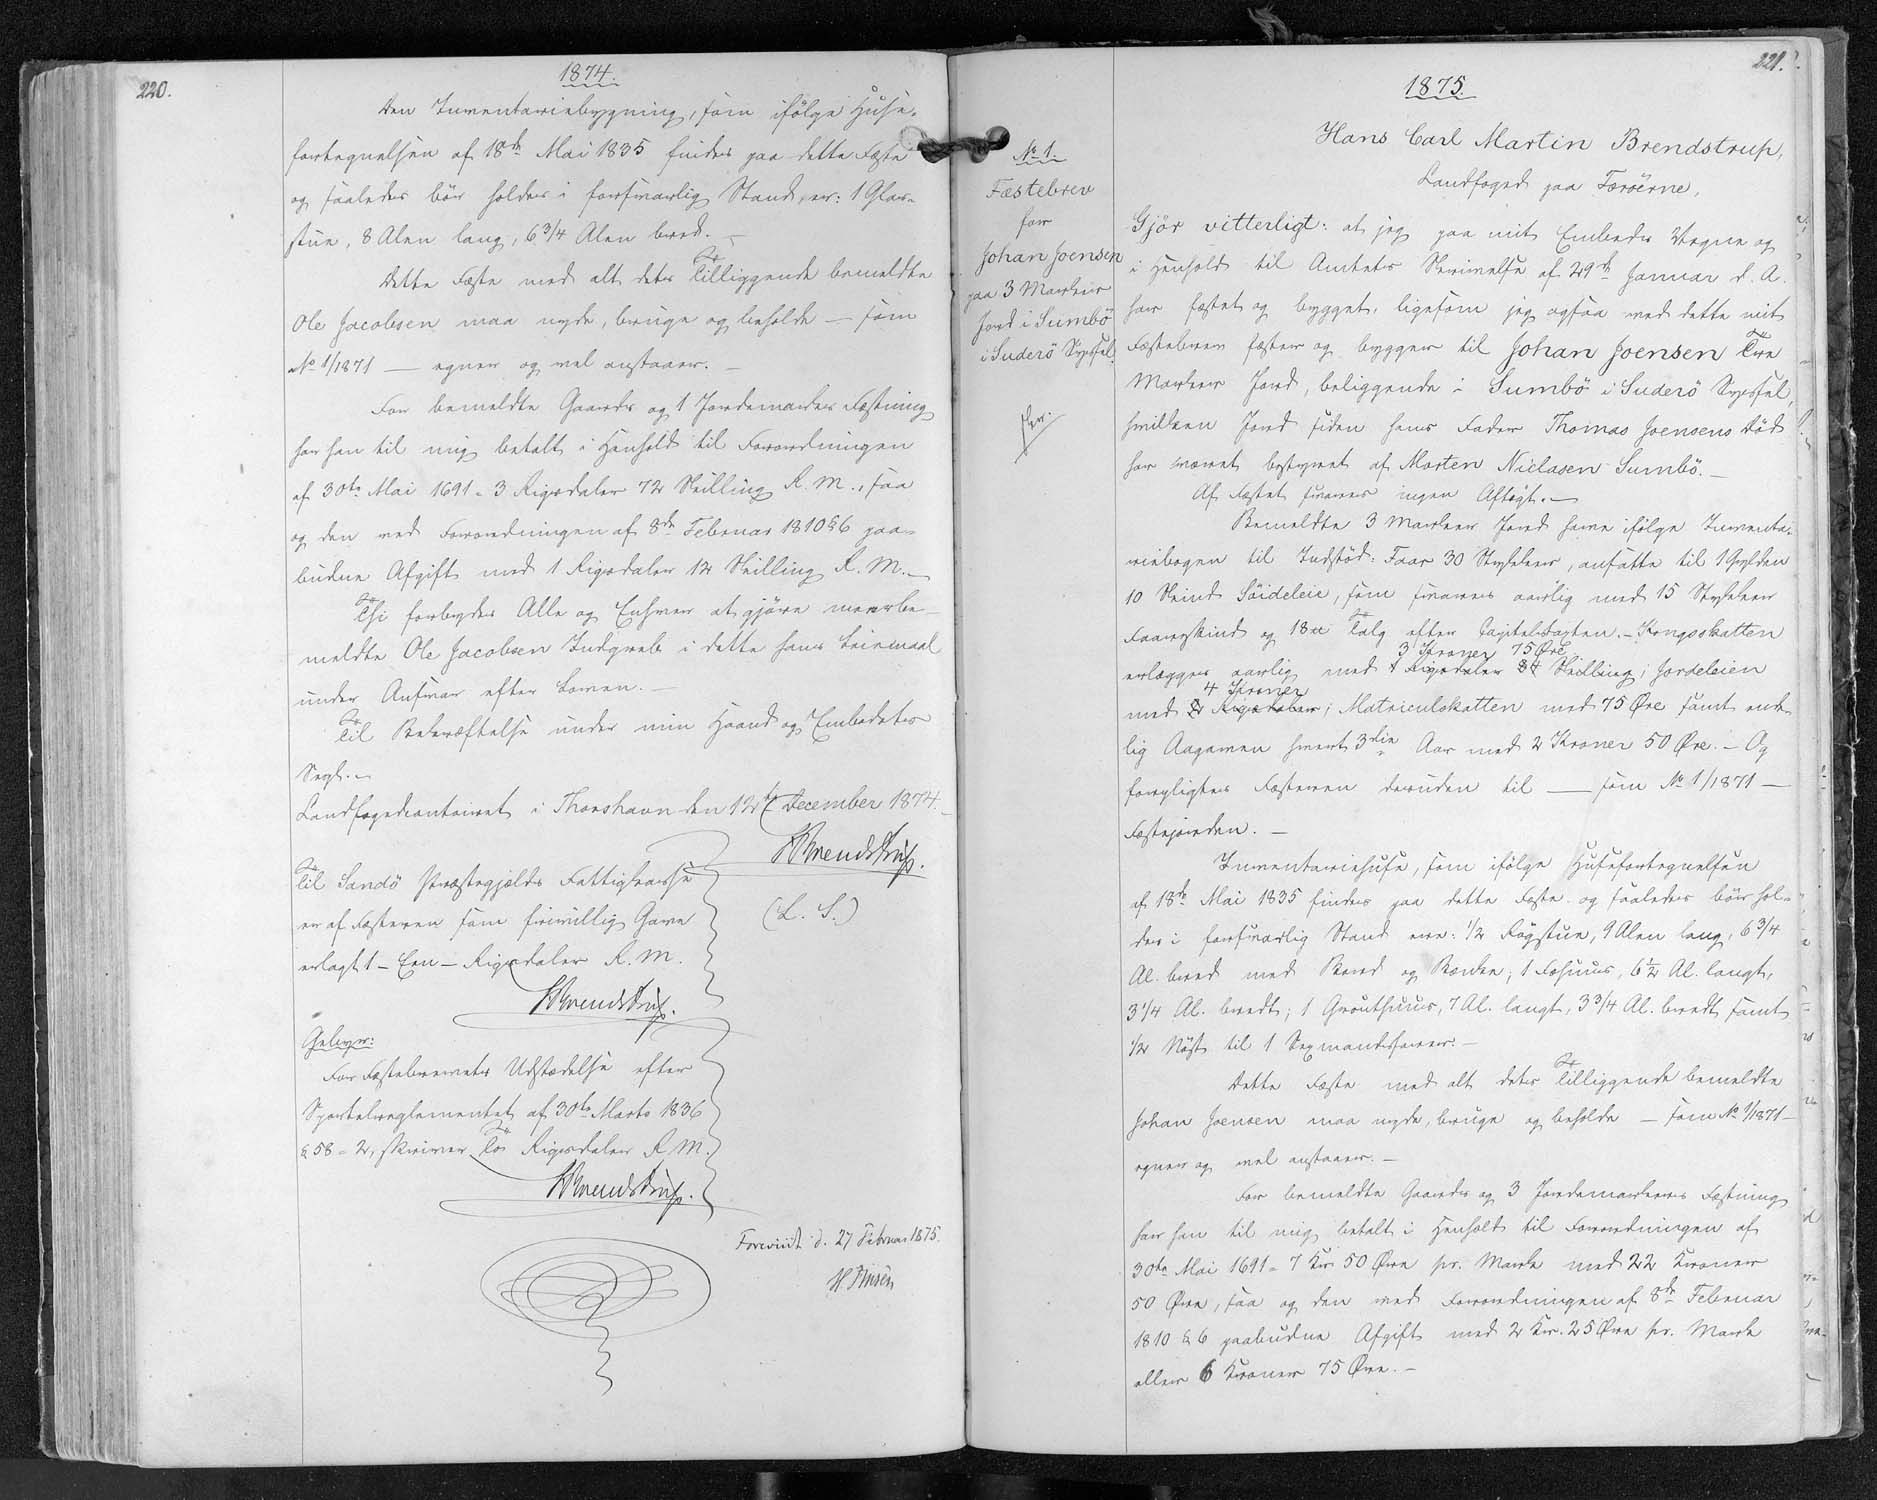 220.
1874.
Den Inventariebygning, som ifölge Huse-
fortegnelsen af 18de Mai 1835 findes paa dette Fæste
og saaledes bör holdes i forsvarlig Stand, er: 1 Glar-
stue, 8 Alen lang, 6 3/4 Alen bred. —
Dette Fæste med alt dets Tilliggende bemeldte
Ole Jacobsen maa nyde, bruge og beholde — som
No 1/1871 — egner og vel anstaaer. —
For bemeldte Gaards og 1 Jordemarks Fæstning
har han til mig betalt i Henhold til Forordningen
af 30te Mai 1691 = 3 Rigsdaler 72 Skilling R. M., saa
og den ved Forordningen af 8de Februar 1810 § 6 paa-
budne Afgift med 1 Rigsdaler 12 Skilling R. M. —
Thi forbydes Alle og Enhver at gjöre meerbe-
meldte Ole Jacobsen Indgreb i dette hans Leiemaal
under Ansvar efter Loven. —
Til Bekræftelse under min Haand og Embedets
Segl. —
Landfogedcontoiret i Thorshavn den 12te December 1874.
HBrendstrup.
(L. S.)
Til Sandö Præstegjælds Fattigkasse
er af Fæsteren som frivillig Gave
erlagt 1 — Een — Rigsdaler R. M.
HBrendstrup.
Gebyr:
For Fæstebrevets Udstædelse efter
Sportelreglementet af 30te Marts 1836
§ 58 = 2, skriver To Rigsdaler R. M.
HBrendstrup.
Foreviist d. 27 Februar 1875.
221.
1875.
No 1.
Fæstebrev
for
Johan Joensen
paa 3 Marker
Jord i Sumbö
i Suderö Syssel.
Hans Carl Martin Brendstrup,
Landfoged paa Færöerne,
Gjör vitterligt: at jeg paa mit Embeds Vegne og
i Henhold til Amtets Skrivelse af 29de Januar d. A.
har fæstet og bygget, ligesom jeg ogsaa ved dette mit
Fæstebrev fæster og bygger til Johan Joensen Tre
Marker Jord, beliggende i Sumbö i Suderö Syssel,
hvilken Jord siden hans Fader Thomas Joensens Död
har været bestyret af Morten Niclasen Sumbö. —
Af Fæstet svares ingen Aftægt. —
Bemeldte 3 Marker Jord have ifölge Inventa-
riebogen til Indstöd: Faar 30 Stykker, ansatte til 1 Gylden
10 Skind Söideleie, som svares aarlig med 15 Stykker
Faareskind og 18 ℔ Talg efter Capitelstaxten. — Kongsskatten
3 Kroner 75 Öre
erlægges aarlig med 1 Rigsdaler 84 Skilling; Jordeleien
4 Kroner
med 2 Rigsdaler; Matriculskatten med 75 Öre samt ende-
lig Aagaven hvert 3die Aar med 2 Kroner 50 Öre. — Og
forpligtes Fæsteren desuden til — som No 1/1871 —
Fæstejorden. —
Inventariehuse, som ifölge Husefortegnelsen
af 18de Mai 1835 findes paa dette Fæste og saaledes bör hol-
des i forsvarlig Stand ere: 1/2 Rögstue, 9 Alen lang, 6 3/4
Al. bred med Bord og Bænke; 1 Fæhuus, 6 1/2 Al. langt,
3 1/4 Al. bredt; 1 Grouthuus, 7 Al. langt, 3 3/4 Al. bredt samt
1/2 Nöst til 1 Sexmandsfarer. —
Dette Fæste med alt dets Tilliggende bemeldte
Johan Joensen maa nyde, bruge og beholde — som No 1/1871 —
egner og vel anstaaer. —
For bemeldte Gaards og 3 Jordemarkers Fæstning
har han til mig betalt i Henhold til Forordningen af
30te Mai 1691 = 7 Kr. 50 Öre pr. Mark med 22 Kroner
50 Öre, saa og den ved Forordningen af 8de Februar
1810 § 6 paabudne Afgift med 2 Kr. 25 Öre pr. Mark
eller 6 Kroner 75 Öre. —